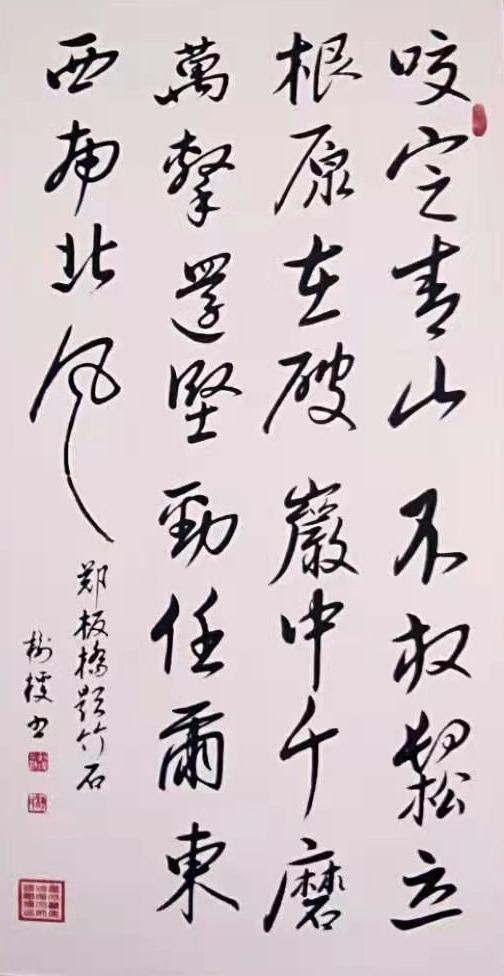 咬定青山不放鬆立
根原在破巖中千磨
萬擊還堅勁任爾東
西南北风
郑板橋题竹石
树书